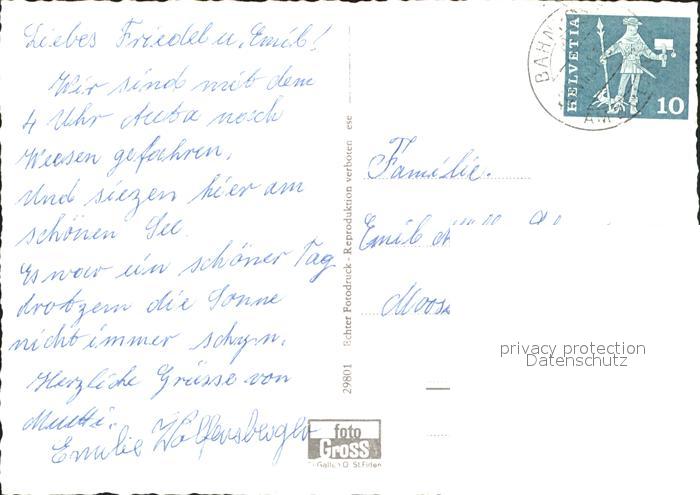 Liebes Friedel u. Emil!
Wir sind mit dem
4 Uhr Auto nach
Weesen gefahren,
und siezen hier am
schönen See.
Es war ein schöner Tag
drotzem die Sonne
nicht immer schyn.
Herzliche Grüsse von
Mutti.
Emilie Wolfensberger
29801 Echter Fotodruck - Reproduktion verboten ese
foto
Gross
St. Gallen
HELVETIA
10
BAHN
Familie.
Emil
Moos
privacy protection
Datenschutz